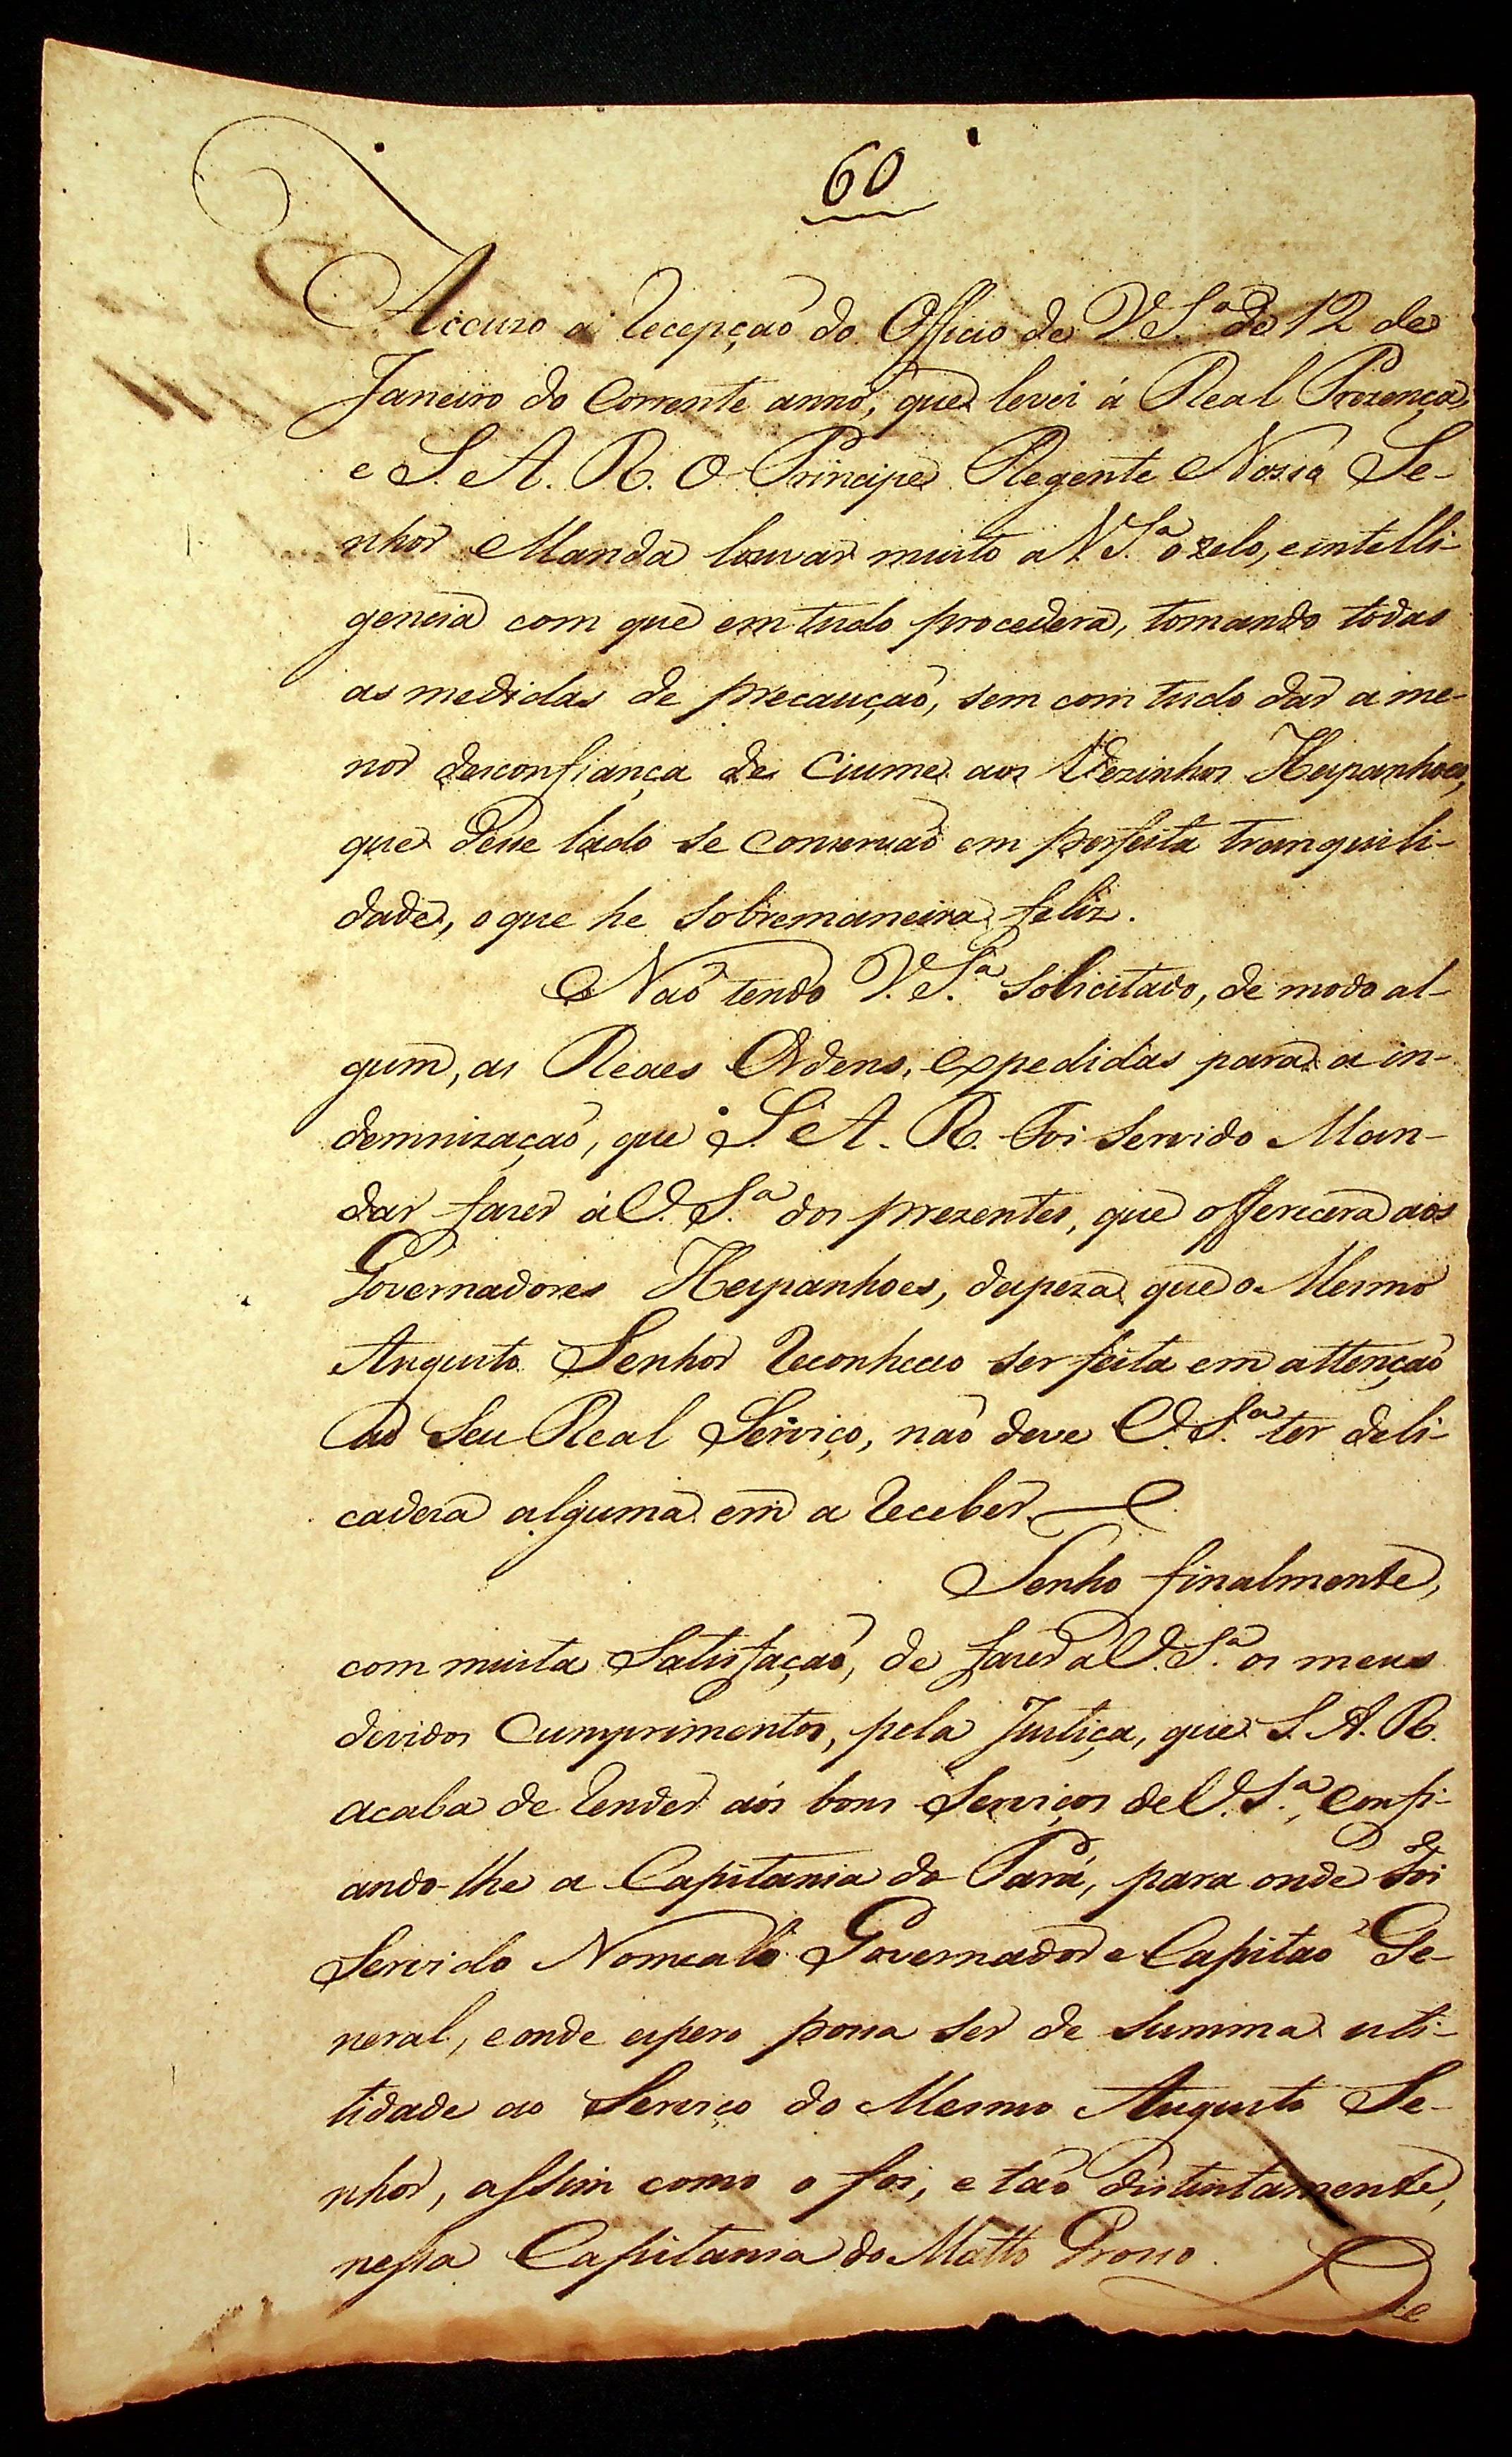 60
Accuzo a recepção do Officio de V. S.ª de 12 de
Janeiro do corrente anno, que levei á Real Prezença,
e S. A. R. O Principe Regente Nosso Se-
nhor Manda louvar muito a V. S.ª o zelo, e intelli-
gencia com que em tudo procedera, tomando todas
as medidas de precaução, sem com tudo dar a me-
nor desconfiança de Ciume aos Vezinhos Hespanhoes,
que desse lado se conservão em perfeita tranquili-
dade, o que he sobremaneira feliz.
Não tendo V. S.ª solicitado, de modo al-
gum, as Reaes Ordens, expedidas para a in-
demnização, que S. A. R. Foi Servido Man-
dar fazer á V. S.ª dos prezentes, que offerecera aos
Governadores Hespanhoes, despeza que o Mesmo
Augusto Senhor Reconheceo ser feita em attenção
ao Seu Real Serviço, não deve V. S.ª ter deli-
cadeza alguma em a receber.
Tenho finalmente,
com muita satisfação, de fazer a V. S.ª os meus
devidos Cumprimentos, pela Justiça, que S. A. R.
acaba de render aos bons Serviços de V. S.ª, confi-
ando-lhe a Capitania do Pará, para onde Foi
Servido Nomealo Governador e Capitão Ge-
neral, e onde espero possa ser de summa uti-
lidade ao Serviço do Mesmo Augusto Se-
nhor, assim como o foi, e tão distintamente,
nessa Capitania do Matto Grosso.
De